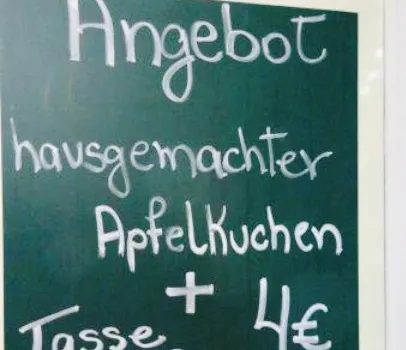 Angebot
hausgemachter
Apfelkuchen
+
Tasse 4€